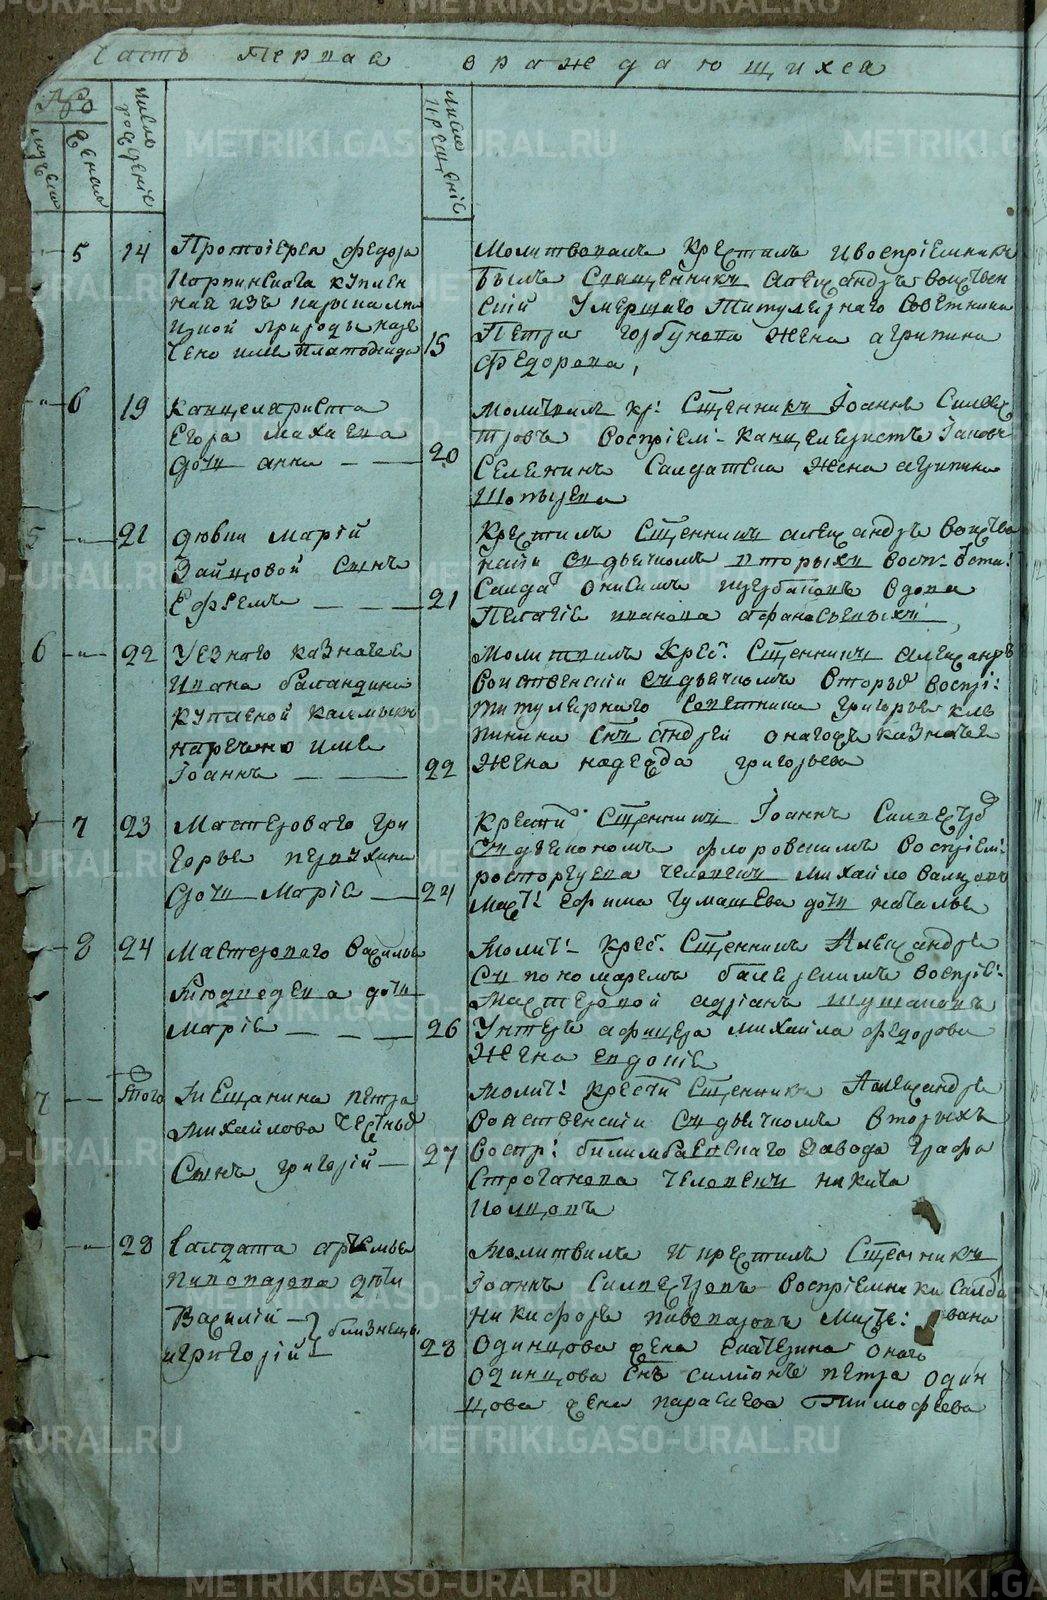 Часть Первая о раждающихся
№
мужеска
женска
число рождение
число крещение
5 14 Протоіерея Федора
Карпинскаго куплен
ная изъ
природы наре
чено имя Платонида 15
Молитвовалъ крестилъ и воспріемникъ
былъ Священникъ Александръ Воинствен
скій Умершаго Титулернаго Советника
Петра Горбунова жена Агрипина
Федорова,
6 19 Канцеляриста
Егора Махаева
дочь анна 20
Молитвилъ кр: Сщенникъ Іоаннъ Силвес
тровъ Воспріем: Канцеляристъ Іаковъ
Селенинъ Салдатска жена агрипина
5 21 девки Маріи
Зайцовой Сынъ
Ефремъ 21
Крестилъ Сщенникъ александръ Воинстве
скіи съ дьячкомъ вторыхъ восп:
Салда Онисимъ щербаковъ вдова
Пелагіе иванова афанасьевыхъ,
6 22 Уезнаго казначея
Ивана баландина
купленой калмыкъ
наречено имя
Іоаннъ 22
Молитвилъ Крес: Сщенникъ александръ
Воинственскіи съ дьячкомъ Вторых воспрі:
титулернаго советника григорья кле
пинина снъ андрей онагожъ казначея
Жена надежда григорьева
7 23 Мастероваго гри
горья пермякина
дочь Маріе 24
Крестил Сщенникъ Іоаннъ Силвестр
съ дьякономъ флоровскимъ воспріем:
расторгуева человекъ михайло
Маст: ефима чумашева дочь наталья
8 24 Мастероваго Василья
дочь
Маріе 26
Молит: крес: Сщенникъ Александръ
съ пономаремъ воспріе:
Мастеровой адріанъ шушаковъ
Унтеръ афицера михайла федорова
жена евдокіе
7 Того Мещанина петра
Михайлова
Сынъ григорій 27
Молит: крести Сщенникъ Александръ
Воинственскіи съ дьячкомъ вторыхъ
Воспр: билимбаевскаго завода графа
Строганова человекъ никита
28 Салдата артемья
Пивоварова дети
Василій
и григорій близнецы 28
Молитвилъ и крестилъ Сщенникъ
Іоаннъ Силвестровъ Воспріемники Салда
Никифоръ пивоваровъ Масте: ивана
Одинцова жена екатерина онаго
Одинцова снъ симіонъ петра один
цова жена параскева Тимофеева